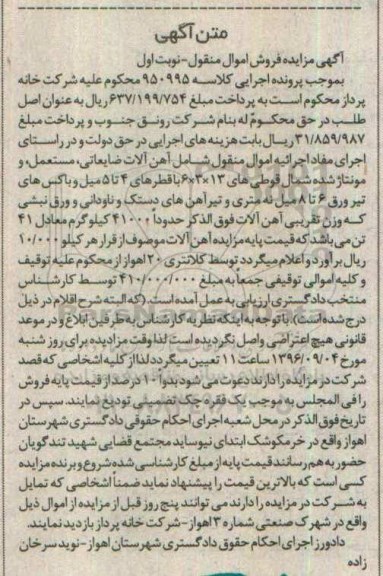 متن آگهی
آگهی مزایده فروش اموال منقول-نوبت اول
بموجب پرونده اجرایی کلاسه ۹۵۰۹۹۵ محکوم علیه شرکت خانه
پرداز محکوم است به پرداخت مبلغ ۶۳۷/۱۹۹/۷۵۴ ریال به عنوان اصل
طلب در حق محکوم له بنام شرکت رونق جنوب و پرداخت مبلغ
۳۱/۸۵۹/۹۸۷ ریال بابت هزینه های اجرایی در حق دولت و در راستای
اجرای مفاد اجرائیه اموال منقول شامل آهن آلات ضایعاتی، مستعمل، و
مونتاژ شده شال قوطی های ۱۳×۶×۳ با قطرهای ۴ تا ۵ میل و باکس های
تیر ورق ۶ تا ۸ میل نه متری و تیر آهن های دستک و ناودانی و ورق نبشی
که وزن تقریبی آهن آلات فوق الذکر حدوداً ۴۱۰۰۰ کیلوگرم معادل ۴۱
تن می باشد که قیمت پایه مزایده آهن آلات موصوف از قرار هر کیلو ۱۰/۰۰۰
ریال برآورد و اعلام میگردد توسط کلانتری ۲۰ اهواز از محکوم علیه توقیف
و کلیه اموالی توقیفی جمعاً به مبلغ ۴۱۰/۰۰۰/۰۰۰ توسط کارشناس
منتخب دادگستری ارزیابی به عمل آمده است. (که البته شرح اقلام در ذیل
درج شده است). با توجه به اینکه نظریه کارشناس به طرفین ابلاغ و در موعد
قانونی هیچ اعتراضی واصل نگردیده است لذا وقت مزایده برای روز شنبه
مورخ ۱۳۹۶/۰۹/۰۴ ساعت ۱۱ تعیین میگردد لذا از کلیه اشخاصی که قصد
شرکت در مزایده را دارند دعوت می شود بدواً ۱۰ درصد از قیمت پایه فروش
را فی المجلس به موجب یک فقره چک تضمینی تودیع نمایند. سپس در
تاریخ فوق الذکر در محل شعبه اجرای احکام حقوقی دادگستری شهرستان
اهواز واقع در خرمکوشک ابتدای نیوساید مجتمع قضایی شهید تندگویان
حضور به هم رسانند قیمت پایه از مبلغ کارشناسی شده شروع و برنده مزایده
کسی است که بالاترین قیمت را پیشنهاد نماید ضمناً اشخاصی که تمایل
به شرکت در مزایده را دارند می توانند پنج روز قبل از مزایده از اموال ذیل
واقع در شهرک صنعتی شماره ۳ اهواز-شرکت خانه پرداز بازدید نمایند.
دادورز اجرای احکام حقوق دادگستری شهرستان اهواز-نوید سرخان
زاده